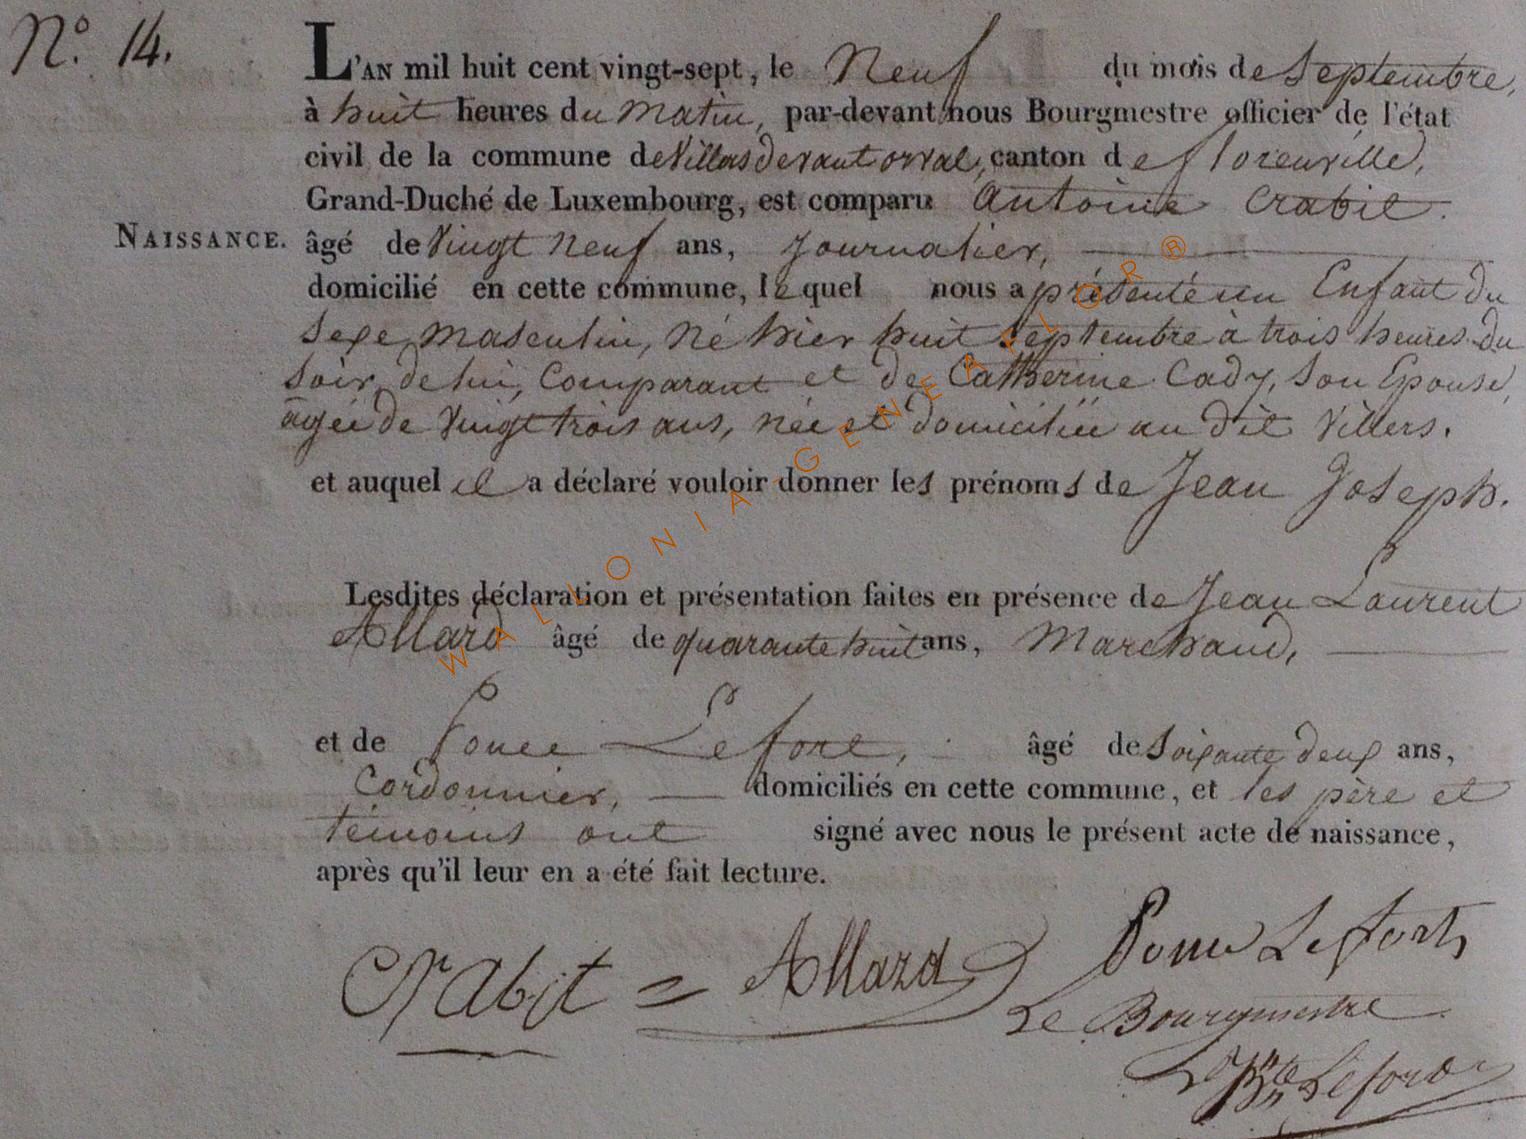 N.° 14.
L'AN mil huit cent vingt-sept, le Neuf du mois de Septembre,
à huit heures du Matin, par-devant nous Bourgmestre officier de l'état
civil de la commune de Villers devant orval, canton de florenville,
Grand-Duché de Luxembourg, est comparu Antoine Crabit.
NAISSANCE. âgé de Vingt Neuf ans, Journalier,
domicilié en cette commune, lequel nous a présenté un Enfant du
Sexe Masculin, Né hier huit Septembre à trois heures du
Soir, de lui, Comparant et de Catherine Cady, Son Epouse,
agée de Vingt trois ans, née et domiciliée au dit Villers.
et auquel il a déclaré vouloir donner les prénoms de Jean Joseph.
Lesdites déclaration et présentation faites en présence de Jean Laurent
Allard âgé de quarante huit ans, Marchand,
et de Ponce Lefort, âgé de Soixante deux ans,
Cordonnier, domiciliés en cette commune, et les père et
témoins ont signé avec nous le présent acte de naissance,
après qu'il leur en a été fait lecture.
Crabit = Allard Ponce Lefort
Le Bourgmestre
Lefort
WALLONIA-GENEALOR®